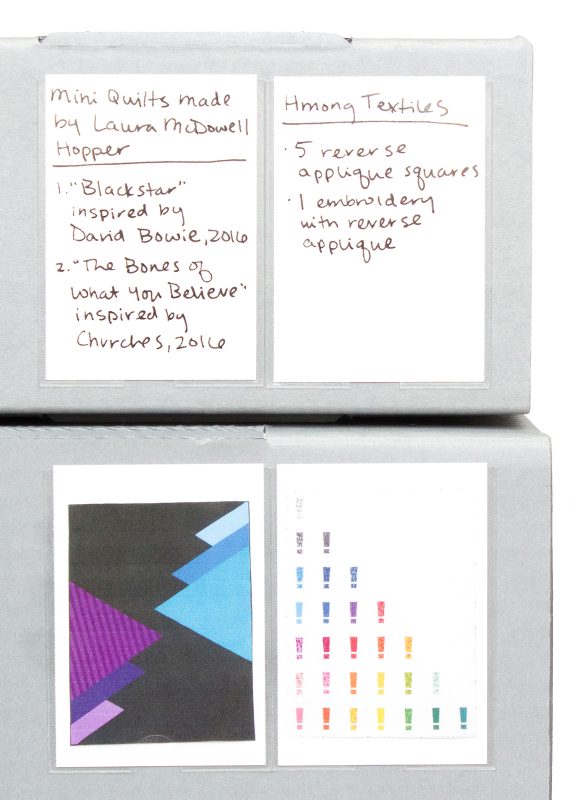 Mini Quilts made
by Laura McDowell
Hopper
1. "Blackstar"
inspired by
David Bowie, 2016
2. "The Bones of
What You Believe"
inspired by
Chvrches, 2016
Hmong Textiles
· 5 reverse
applique squares
· 1 embroidery
with reverse
applique